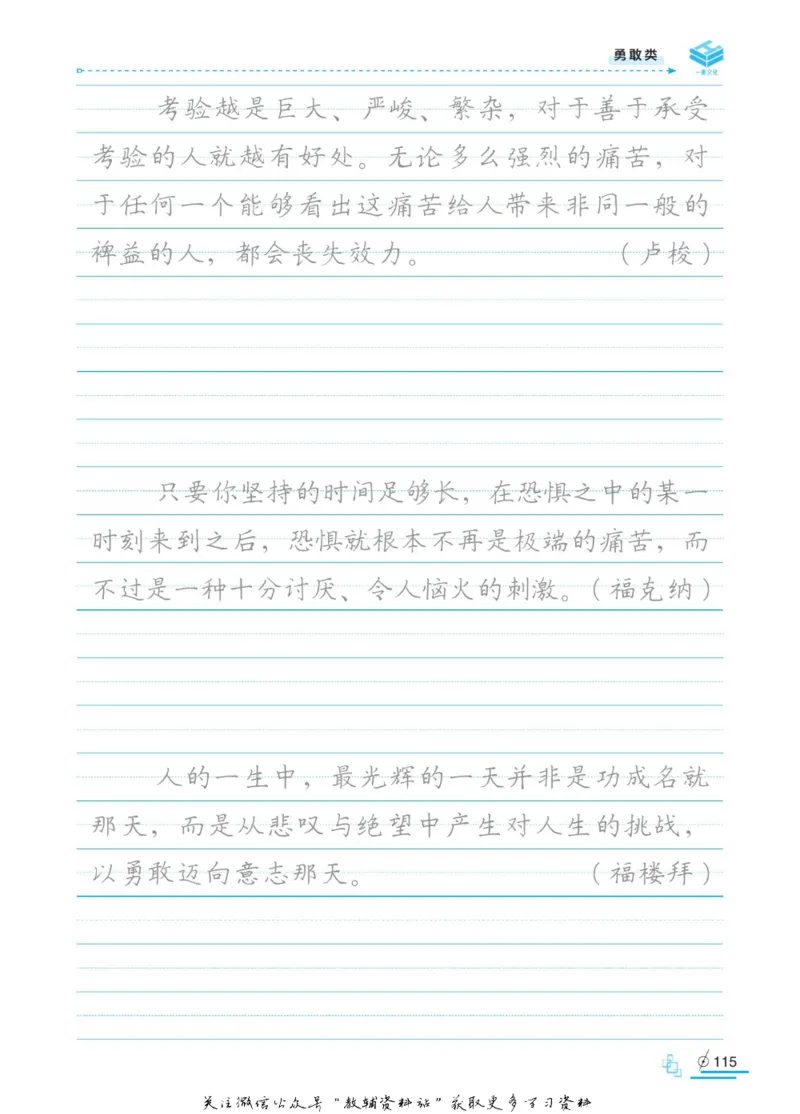 勇敢类
一本文化
考验越是巨大、严峻、繁杂，对于善于承受
考验的人就越有好处。无论多么强烈的痛苦，对
于任何一个能够看出这痛苦给人带来非同一般的
裨益的人，都会丧失效力。（卢梭）
只要你坚持的时间足够长，在恐惧之中的某一
时刻来到之后，恐惧就根本不再是极端的痛苦，而
不过是一种十分讨厌、令人恼火的刺激。（福克纳）
人的一生中，最光辉的一天并非是功成名就
那天，而是从悲叹与绝望中产生对人生的挑战，
以勇敢迈向意志那天。（福楼拜）
115
关注微信公众号“教辅资料站”获取更多学习资料